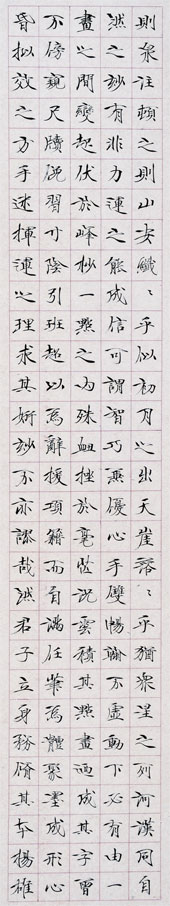 則泉注頓之則山安纖〻乎似初月之出天崖落〻乎猶衆星之列河漢同自
然之妙有非力運之能成信可謂智巧兼優心手雙暢翰不虛動下必有由一
畫之間變起伏於峰杪一點之內殊衄挫於毫芒況雲積其點畫迺成其字曾
不傍窺尺牘俯習寸陰引班超以為辭援項籍而自滿任筆為體聚墨成形心
昏擬效之方手迷揮運之理求其妍妙不亦謬哉然君子立身務脩其本楊雄